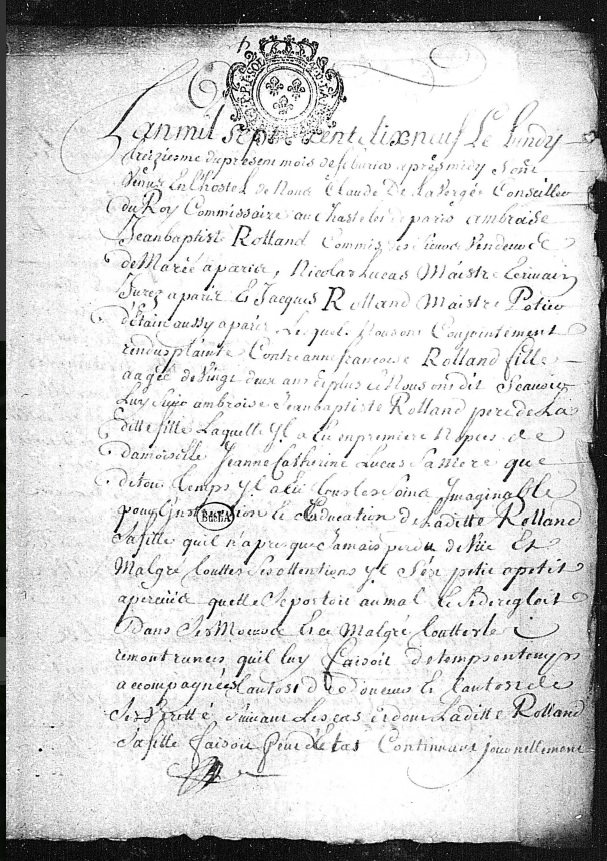 Lan mil sept Cent dix neuf Le Lundy
treiziesme du present mois de febvrier apres midy sont
Venus En Lhostel de Nous Claude De La vergée Conseiller
du Roy Commissaire au Chastelet de paris ambroise
Jean baptiste Rolland Commis des Vendeurs
de Marée a paris, Nicolas Lucas Maistre Ecrivain
Juré a paris Et Jacques Rolland Maistre Potier
d'étain aussy a paris Lesquels Nous ont Conjointement
rendus plainte Contre anne francoise Rolland fille
aagée de Vingt deux ans de plus et Nous ont dit Scavoir
Luy Sieur ambroise Jean baptiste Rolland pere de La
ditte fille Laquelle yl a Eu en premiere Nopces de
damoiselle Jeanne Catherine Lucas Sa Mere que
de tou temps yl a Eu tous Les Soins Imaginable
pour Linstruction Et Education de Laditte Rolland
Sa fille quil n'a presque Jamais perdu de Vue Et
Malgré touttes Ses attentions yl S'est petit a petit
aperceue quelle Se portoit au mal Et Se deregloit
Dans Ses Moeurs Et ce Malgré toutte les
remontrances quil luy faisoit de temps en temps
accompagnées tantost de douceurs Et tantost de
Severitté Suivant Les cas et dont Laditte Rolland
Sa fille faisoit peu d'Etat Continuant journellement